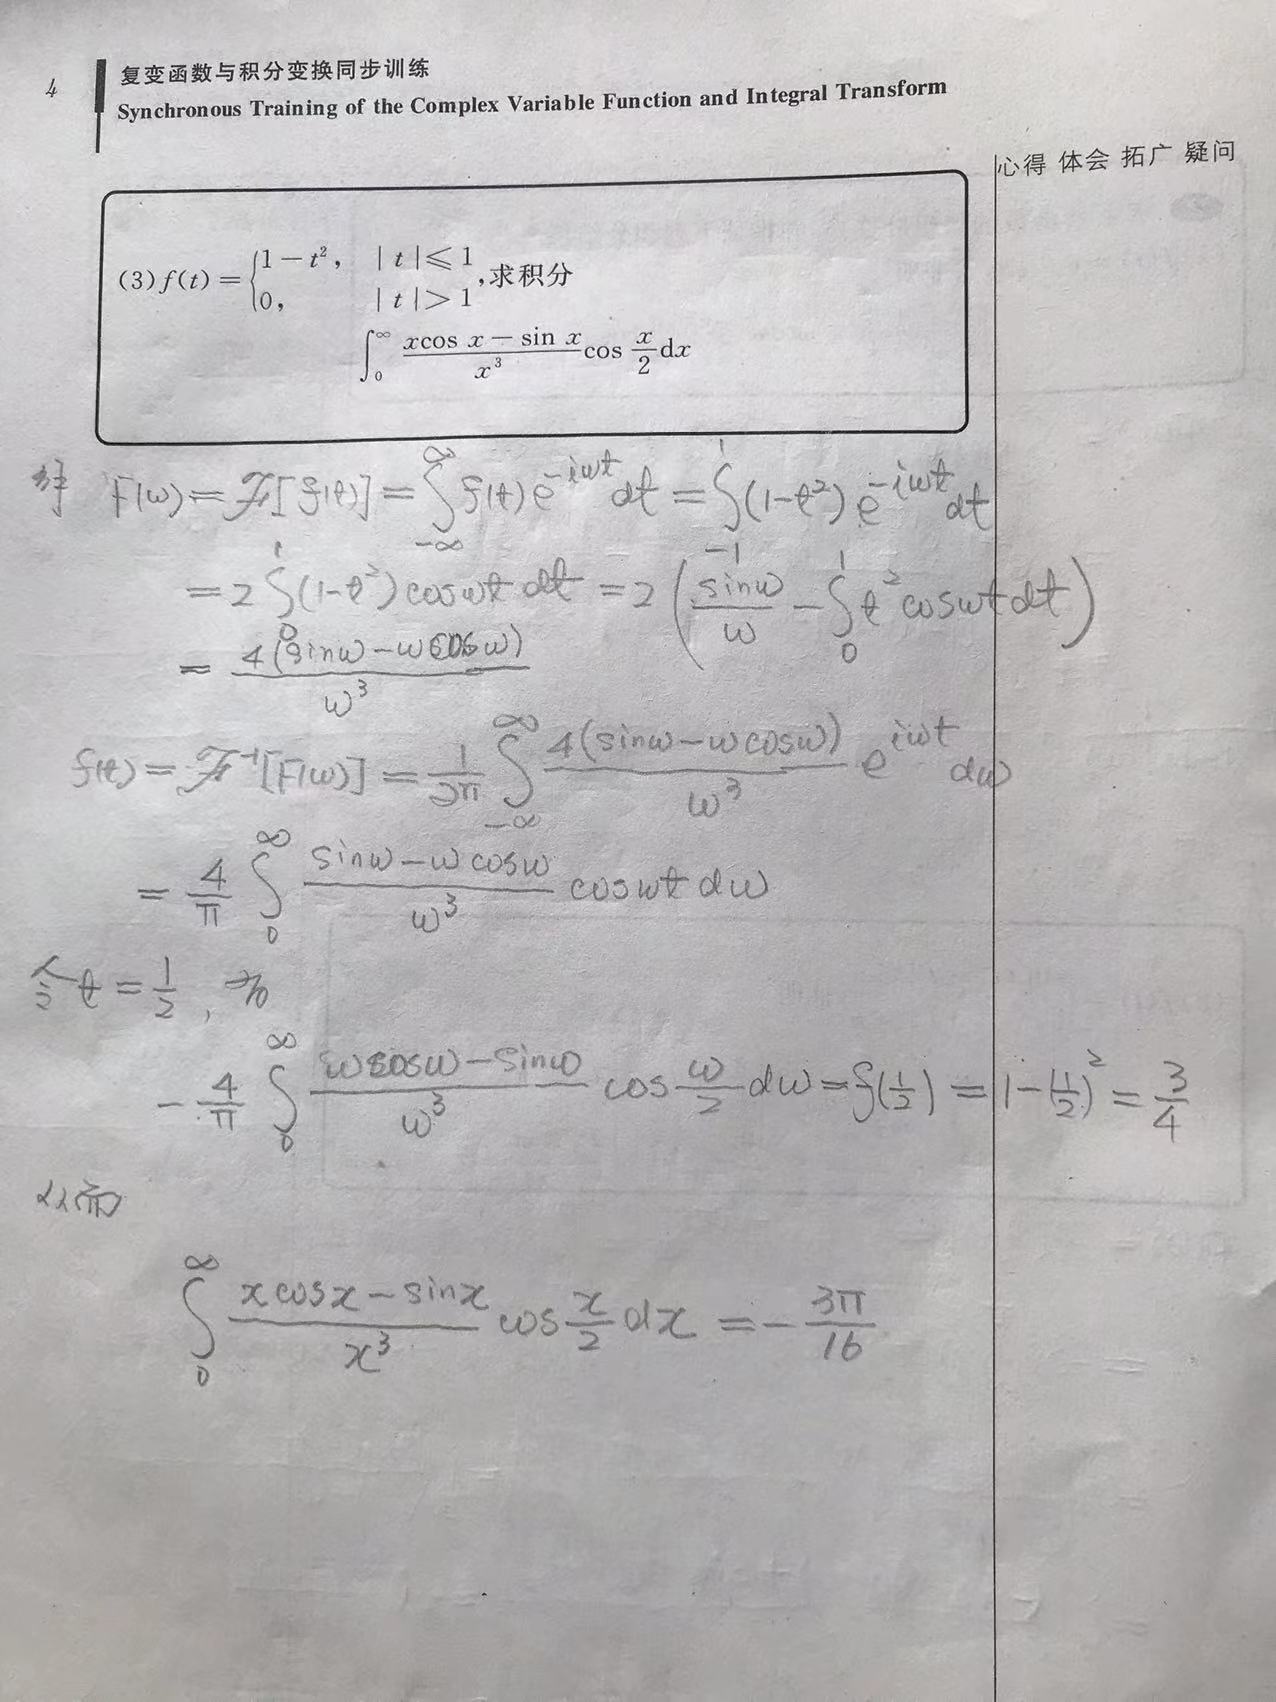 4
复变函数与积分变换同步训练
Synchronous Training of the Complex Variable Function and Integral Transform
心得 体会 拓广 疑问
(3) f(t) = {1-t², |t|⩽1
0, |t|>1 ,求积分
∫₀^∞ (xcos x - sin x)/x³ cos x/2 dx
解 F(ω) = ℱ[f(t)] = ∫_{-∞}^{∞} f(t)e^{-iωt}dt = ∫_{-1}^{1} (1-t²)e^{-iωt}dt
= 2∫₀¹(1-t²)cosωt dt = 2(sinω/ω - ∫₀¹t²cosωt dt)
= 4(sinω-ωcosω)/ω³
f(t) = ℱ⁻¹[F(ω)] = 1/2π ∫_{-∞}^{∞} 4(sinω-ωcosω)/ω³ e^{iωt}dω
= 4/π ∫₀^∞ (sinω-ωcosω)/ω³ cosωt dω
令t=1/2, 为
-4/π ∫₀^∞ (ωcosω-sinω)/ω³ cos ω/2 dω = f(1/2) = 1-(1/2)² = 3/4
从而
∫₀^∞ (xcosx-sinx)/x³ cos x/2 dx = -3π/16